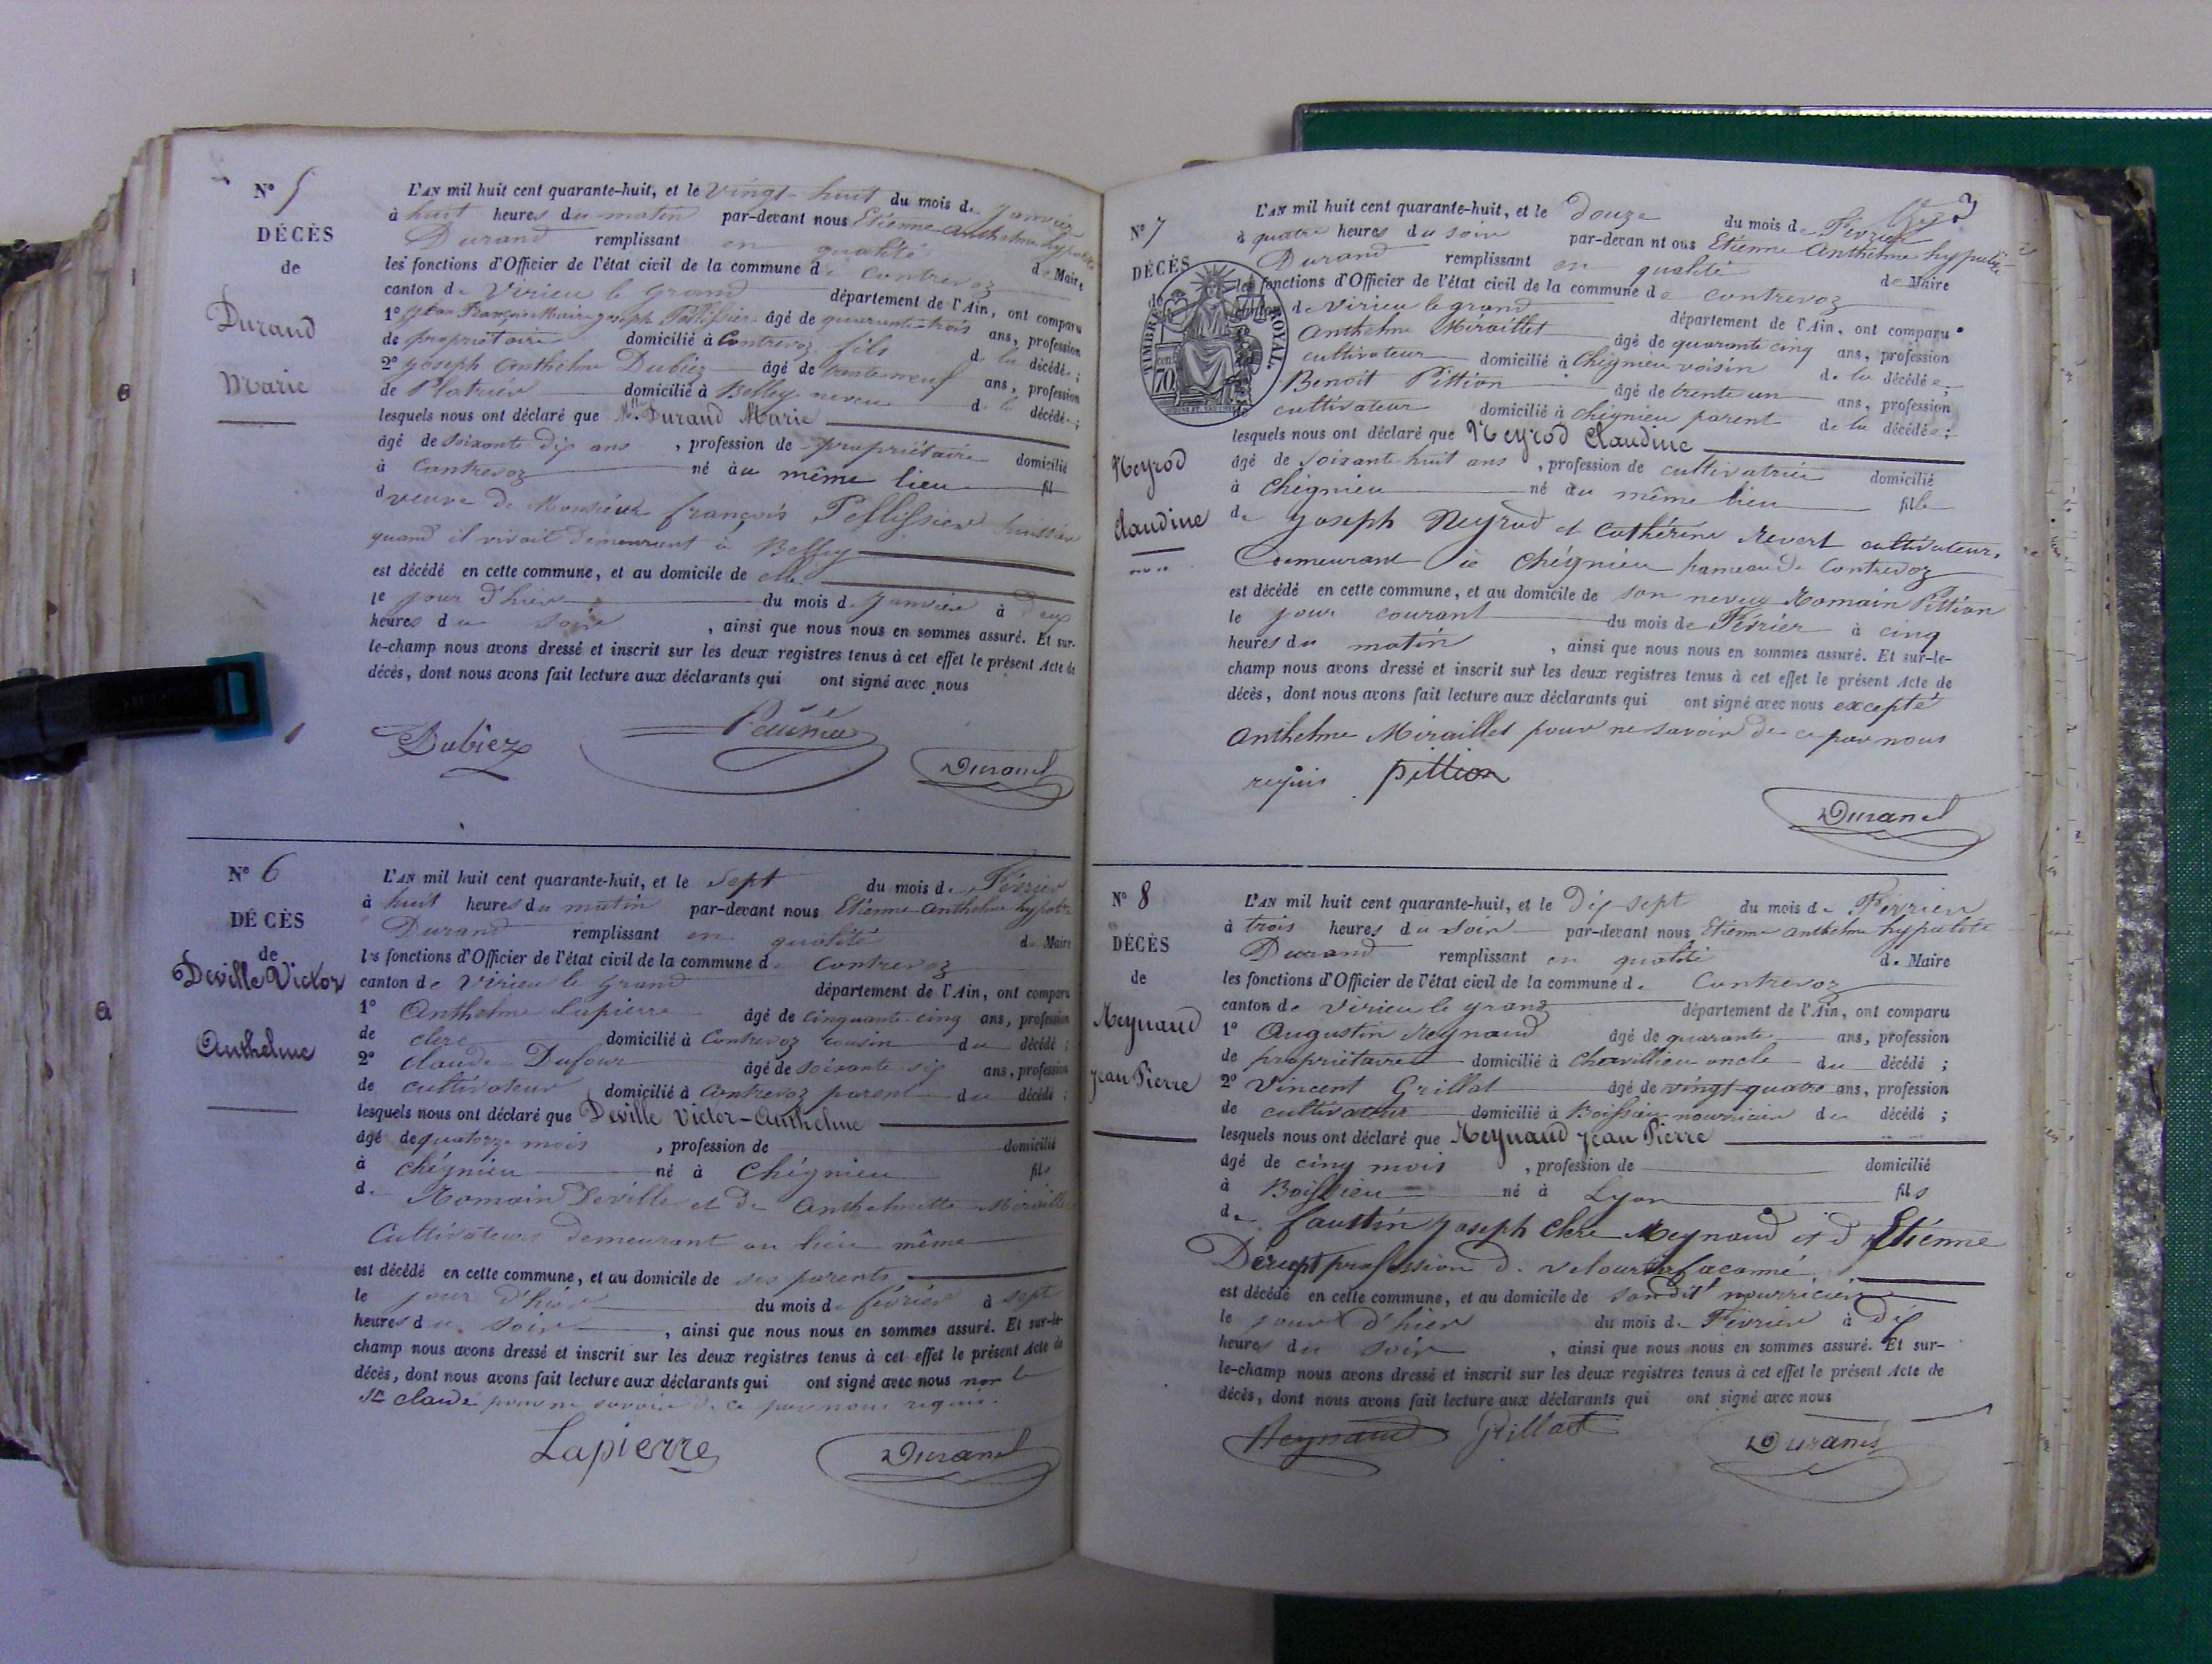 N° 5
DÉCÈS
de
Durand
Marie
L'AN mil huit cent quarante-huit, et le vingt-huit du mois de Janvier
à huit heures du matin par-devant nous Etienne Anthelme hypolite
Durand remplissant en qualité de Maire
les fonctions d'Officier de l'état civil de la commune de Contrevoz
canton de Virieu le grand département de l'Ain, ont comparu
1° Jean François Marie Joseph Pellissier âgé de quarante-trois ans, profession
de propriétaire domicilié à Contrevoz fils de la décédée ;
2° Joseph Anthelme Dubiez âgé de trente neuf ans, profession
de Platrier domicilié à Belley neveu de la décédée ;
lesquels nous ont déclaré que Durand Marie
âgé de soixante dix ans , profession de propriétaire domicilié
à Contrevoz né au même lieu fil
d veuve de Monsieur françois Pellissier huissier
quand il vivait demeurant à Belley
est décédé en cette commune, et au domicile de elle
le jour d'hier du mois de Janvier à Deux
heures du soir , ainsi que nous nous en sommes assuré. Et sur-
le-champ nous avons dressé et inscrit sur les deux registres tenus à cet effet le présent Acte de
décès, dont nous avons fait lecture aux déclarants qui ont signé avec nous
Dubiez Durand
N° 6
DÉCÈS
de
Deville Victor
Anthelme
L'AN mil huit cent quarante-huit, et le sept du mois de Février
à huit heures du matin par-devant nous Etienne Anthelme hypolite
Durand remplissant en qualité de Maire
les fonctions d'Officier de l'état civil de la commune de Contrevoz
canton de Virieu le grand département de l'Ain, ont comparu
1° Anthelme Lapierre âgé de cinquante-cinq ans, profession
de clerc domicilié à Contrevoz cousin du décédé ;
2° claude Dufour âgé de soixante-six ans, profession
de cultivateur domicilié à Contrevoz parent du décédé ;
lesquels nous ont déclaré que Deville Victor-Anthelme
âgé de quatorze mois , profession de domicilié
à Chégnieu né à Chégnieu fils
de Romain Deville et de Anthelmette Miraillet
Cultivateurs demeurant au lieu même
est décédé en cette commune, et au domicile de ses parents
le jour d'hier du mois de février à sept
heures du soir , ainsi que nous nous en sommes assuré. Et sur-le-
champ nous avons dressé et inscrit sur les deux registres tenus à cet effet le présent Acte de
décès, dont nous avons fait lecture aux déclarants qui ont signé avec nous non le
Sr claude pour ne savoir de ce par nous requis.
Lapierre Durand
3
N° 7
DÉCÈS
de
TIMBRE ROYAL.
70 cent
Neyrod
Claudine
L'AN mil huit cent quarante-huit, et le douze du mois de Février
à quatre heures du soir par-devan nt ous Etienne Anthelme hypolite
Durand remplissant en qualité de Maire
les fonctions d'Officier de l'état civil de la commune de Contrevoz
canton de Virieu le grand département de l'Ain, ont comparu
Anthelme Miraillet âgé de quarante cinq ans, profession
cultivateur domicilié à Chégnieu voisin de la décédée ;
Benoit Pittion âgé de trente un ans, profession
cultivateur domicilié à Chégnieu parent de la décédée ;
lesquels nous ont déclaré que Neyrod Claudine
âgé de soixante huit ans , profession de cultivatrice domicilié
à Chégnieu né au même lieu fille
de Joseph Neyrod et Cathérine Revert cultivateurs
Demeurant à Chégnieu hameau de Contrevoz
est décédé en cette commune, et au domicile de son neveu Romain Pittion
le jour courant du mois de Février à cinq
heures du matin , ainsi que nous nous en sommes assuré. Et sur-le-
champ nous avons dressé et inscrit sur les deux registres tenus à cet effet le présent Acte de
décès, dont nous avons fait lecture aux déclarants qui ont signé avec nous excepté
Anthelme Miraillet pour ne savoir de ce par nous
requis pittion
Durand
N° 8
DÉCÈS
de
Reynaud
Jean Pierre
L'AN mil huit cent quarante-huit, et le Dix-sept du mois de Février
à trois heures du soir par-devant nous Etienne Anthelme hypolite
Durand remplissant en qualité de Maire
les fonctions d'Officier de l'état civil de la commune de Contrevoz
canton de Virieu le grand département de l'Ain, ont comparu
1° Augustin Reynaud âgé de quarante ans, profession
de propriétaire domicilié à Chervillieu oncle du décédé ;
2° Vincent Grillat âgé de vingt-quatre ans, profession
de cultivateur domicilié à Boissieu nourricier du décédé ;
lesquels nous ont déclaré que Reynaud Jean Pierre
âgé de cinq mois , profession de domicilié
à Boissieu né à Lyon fils
de faustin Joseph Clere Reynaud et d'Etienne
Derupt profession de velours façonné
est décédé en cette commune, et au domicile de son dit nourricier
le jour d'hier du mois de Février à Dix
heures du soir , ainsi que nous nous en sommes assuré. Et sur-
le-champ nous avons dressé et inscrit sur les deux registres tenus à cet effet le présent Acte de
décès, dont nous avons fait lecture aux déclarants qui ont signé avec nous
Reynaud Grillat Durand